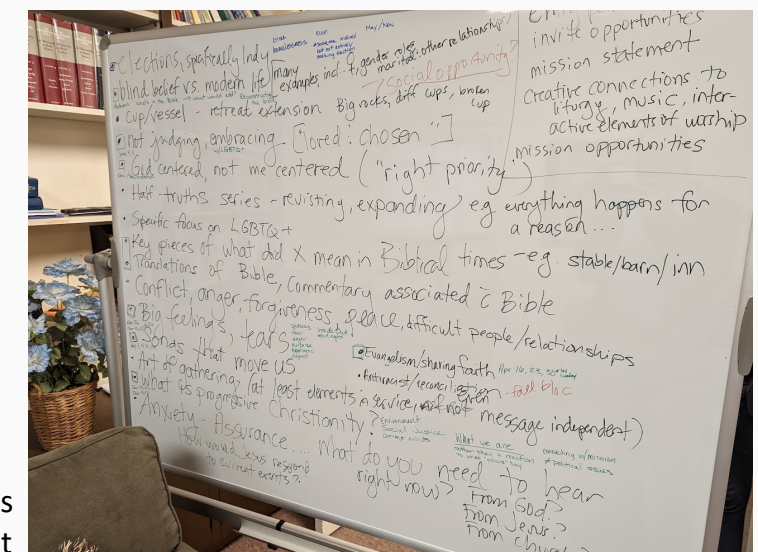 invite opportunities
mission statement
Creative connections to
liturgy, music, inter-
active elements of worship
mission opportunities
May/Nov
Elections, specifically Indy
blind belief vs. modern life/many
examples, incl.
gender roles
marital : other relationships
social opportunity?
Cup/vessel - retreat extension Big rocks, diff cups, broken
cup
not judging, embracing [loved : chosen "]
LGBTQ+
God centered, not me-centered ("right priority")
Half-truths series - revisting, expanding eg everything happens for
a reason...
Specific focus on LGBTQ+
Key pieces of what did X mean in Biblical times - eg. stable/barn/inn
Translations of Bible, Commentary associated c̄ Bible
Conflict, anger, forgiveness, peace, difficult people/relationships
Big feelings, fears
Songs that move us
Evangelism/sharing faith Apr 16, 23, 30
Antiracist/reconciliation - fall bloc
Art of gathering, (at least elements in service, not message independent)
What is progressive Christianity?
Environment
Social Justice
What we are
rather than a reaction
to what others say
connecting w/mission
≠ political issues
Anxiety - Assurance.... What do you need to hear
right now?
How would Jesus respond
to current events?
From God?
From Jesus?
From Church?
s
t